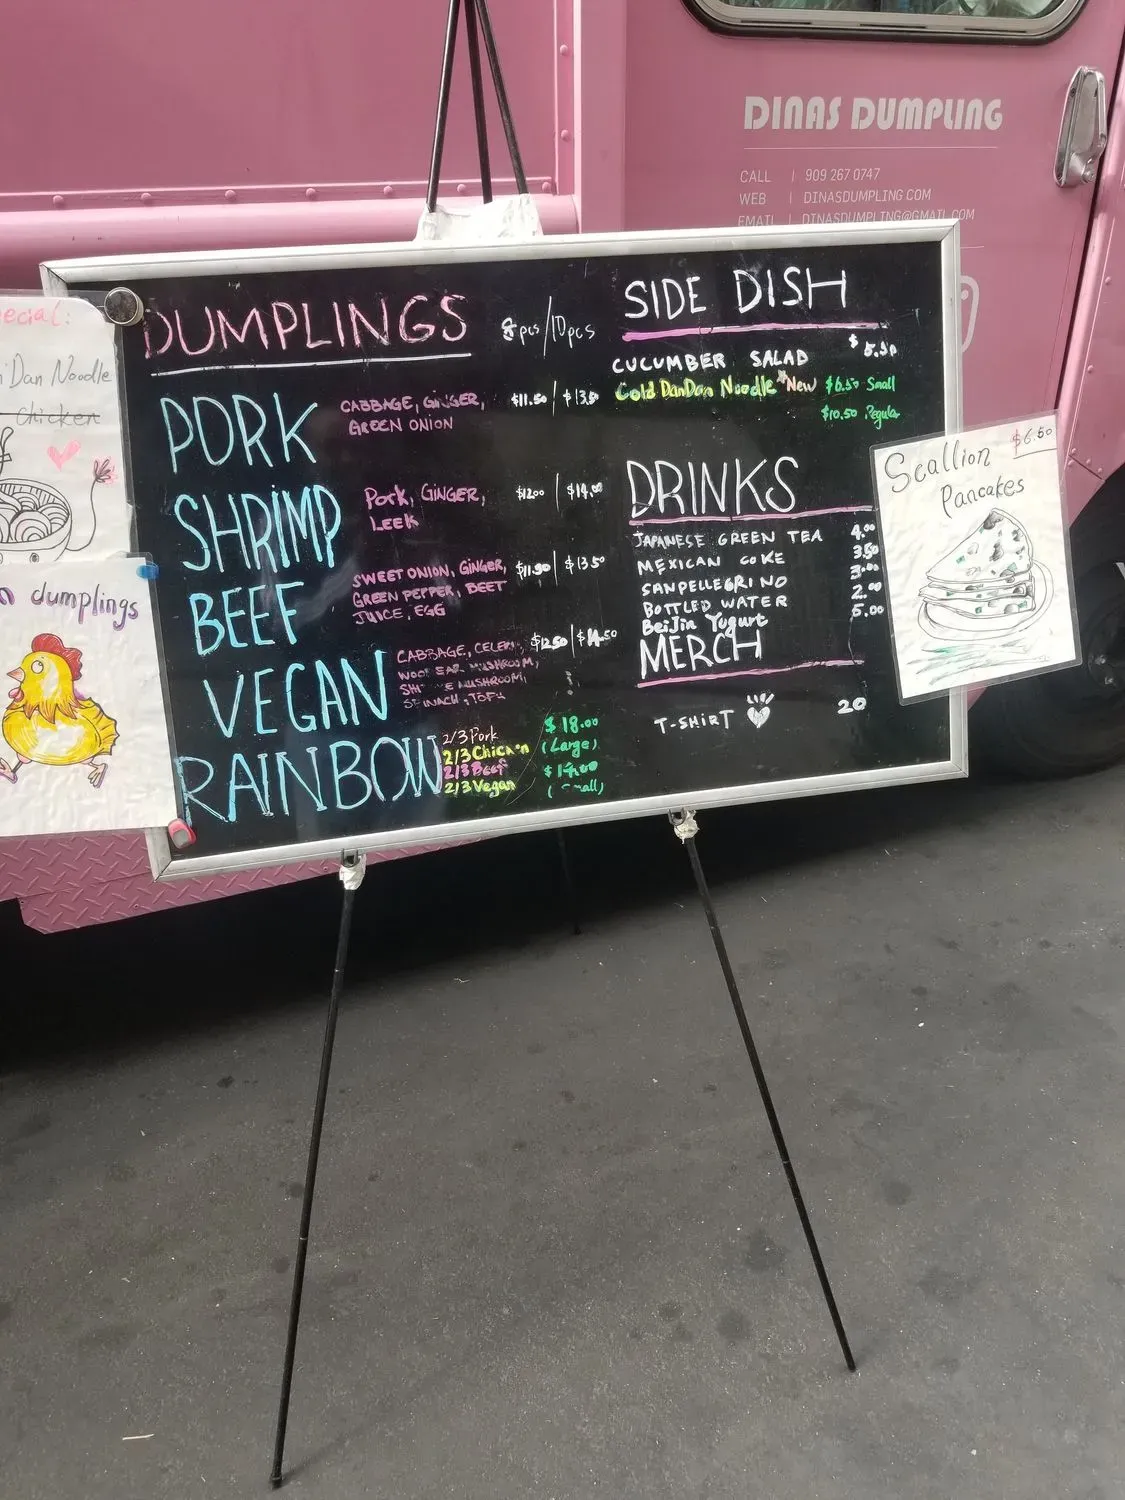 DINAS DUMPLING
CALL | 909 267 0747
WEB | DINASDUMPLING.COM
EMAIL | DINASDUMPLING@GMAIL.COM
ecial:
Dan Noodle
chicken
dumplings
DUMPLINGS 8pcs/10pcs
PORK CABBAGE, GINGER, $11.50 | $13.50
GREEN ONION
SHRIMP Pork, GINGER, $12.00 | $14.00
LEEK
BEEF SWEET ONION, GINGER, $11.50 | $13.50
GREEN PEPPER, BEET
JUICE, EGG
VEGAN CABBAGE, CELERY, $12.50 | $14.50
WOOD EAR MUSHROOM,
MUSHROOM,
SPINACH, TOFU
RAINBOW 2/3 Pork $18.00
2/3 Chicken (Large)
2/3 Beef
2/3 Vegan (Small)
SIDE DISH
CUCUMBER SALAD $5.50
Cold DanDan Noodle *New $6.50 Small
$10.50 Regular
DRINKS
JAPANESE GREEN TEA 4.00
MEXICAN COKE 3.50
SANPELLEGRINO 3.00
BOTTLED WATER 2.00
BeiJin Yugurt 5.00
MERCH
T-SHIRT 20
$6.50
Scallion
Pancakes